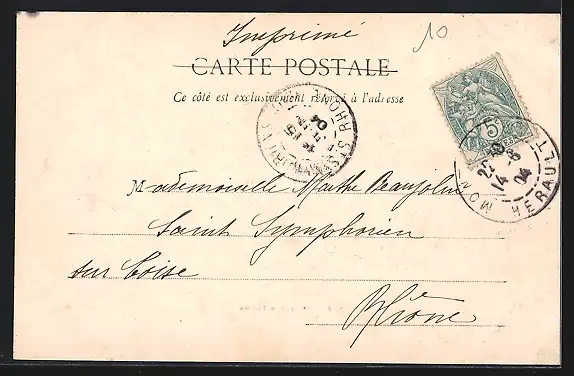 Imprimé
10
CARTE POSTALE
Ce côté est exclusivement réservé à l'adresse
5
22 30
14 - 6
04
HÉRAULT
15
04
RHONE
Mademoiselle Marthe Beaujolin
Saint Symphorien
sur Coise
Rhône